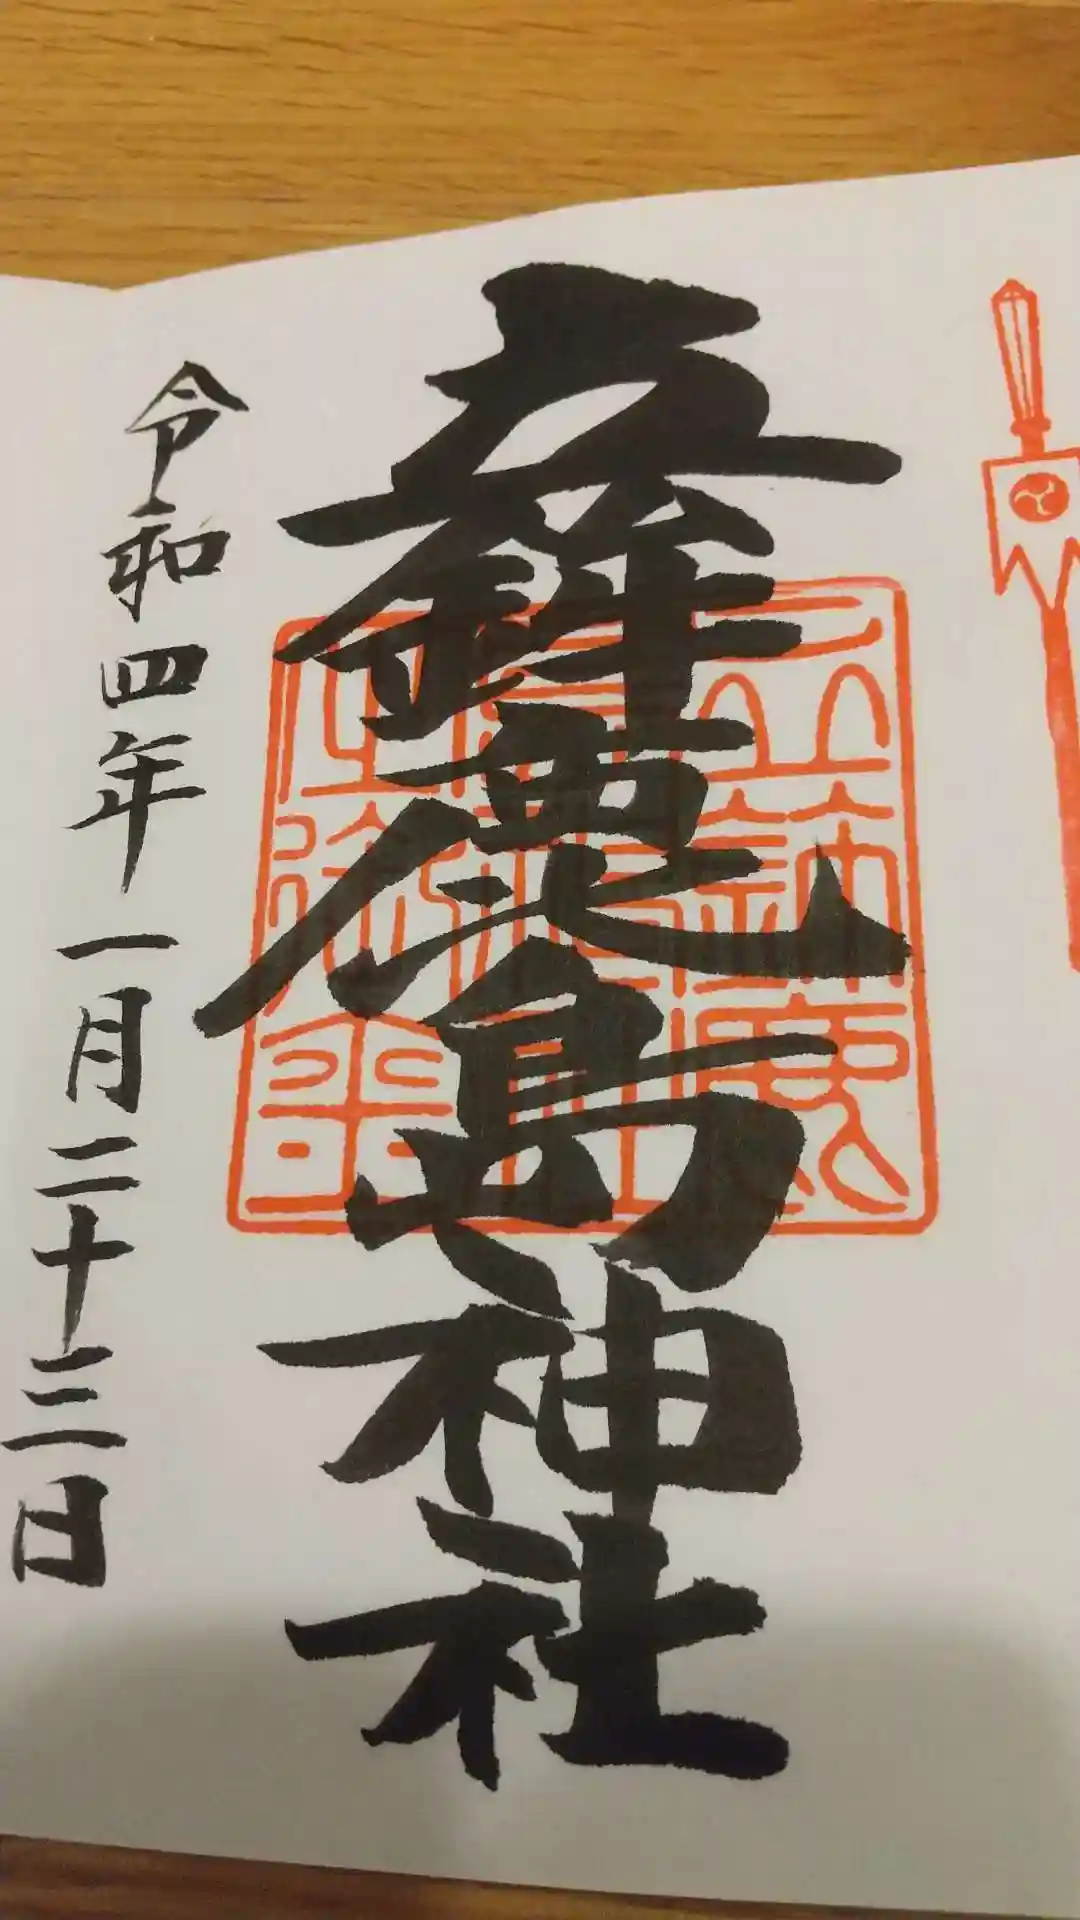 立鉾鹿島神社
令和四年一月二十三日